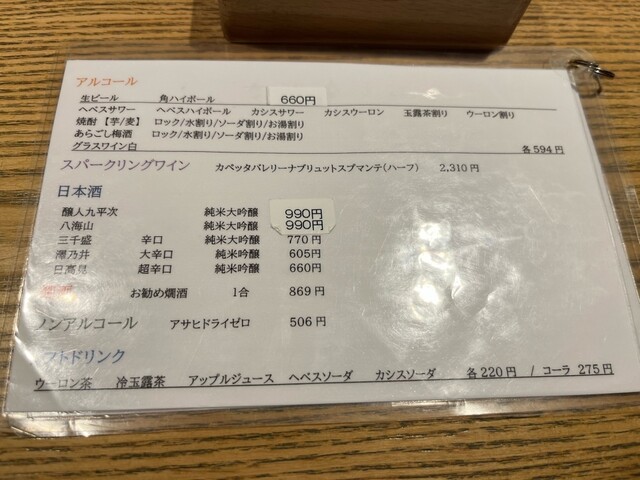 アルコール
生ビール 角ハイボール 660円
ヘベスサワー ヘベスハイボール カシスサワー カシスウーロン 玉露茶割り ウーロン割り
焼酎【芋/麦】 ロック/水割り/ソーダ割り/お湯割り
あらごし梅酒 ロック/水割り/ソーダ割り/お湯割り
グラスワイン白 各594円
スパークリングワイン カペッタバレリーナブリュットスプマンテ(ハーフ) 2,310円
日本酒
醸人九平次 純米大吟醸 990円
八海山 純米大吟醸 990円
三千盛 辛口 純米大吟醸 770円
澤乃井 大辛口 純米吟醸 605円
日高見 超辛口 純米吟醸 660円
お勧め燗酒 1合 869円
ノンアルコール アサヒドライゼロ 506円
フトドリンク
ウーロン茶 冷玉露茶 アップルジュース ヘベスソーダ カシスソーダ 各220円 / コーラ 275円